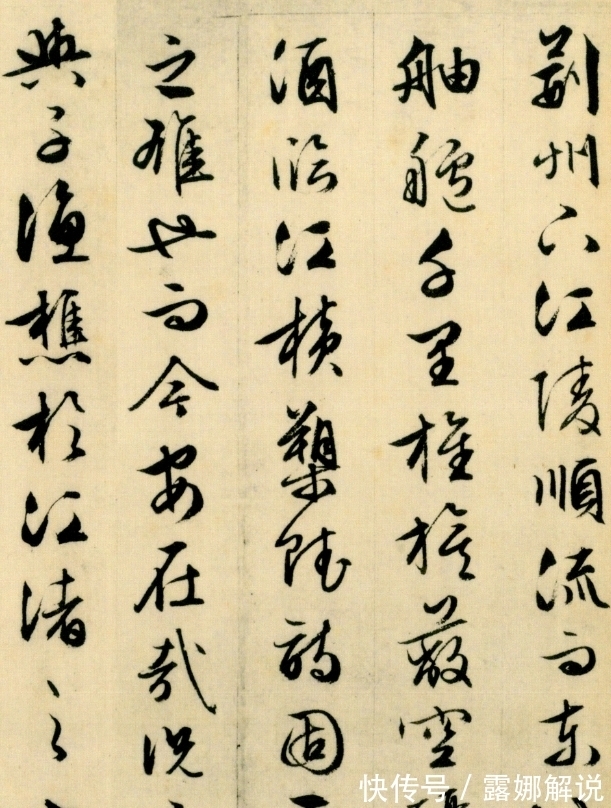 荆州下江陵順流而東
舳艫千里旌旗蔽空
酒臨江橫槊賦詩固
之雄也而今安在哉況
與子漁樵於江渚之
快传号 / 露娜解说